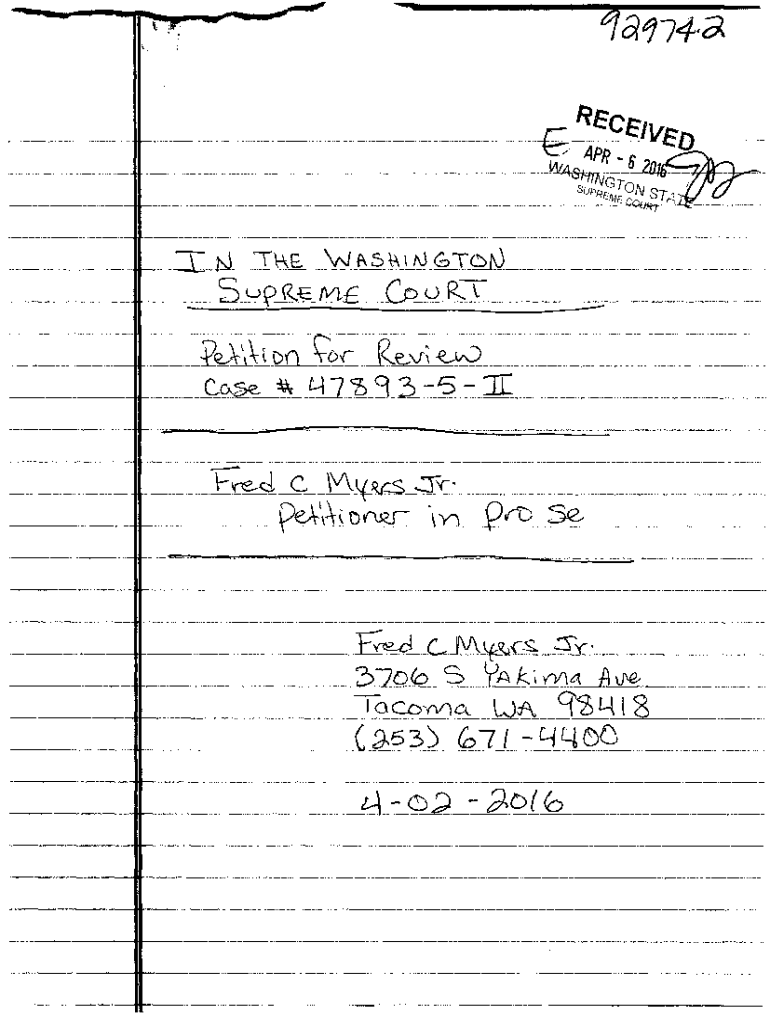 929742
RECEIVED
E
APR - 6 2016
WASHINGTON STATE
SUPREME COURT
IN THE WASHINGTON
SUPREME COURT
Petition for Review
Case # 47893-5-II
Fred C Myers Jr.
Petitioner in pro se
Fred C Myers Jr.
3706 S Yakima Ave
Tacoma WA 98418
(253) 671-4400
4-02-2016